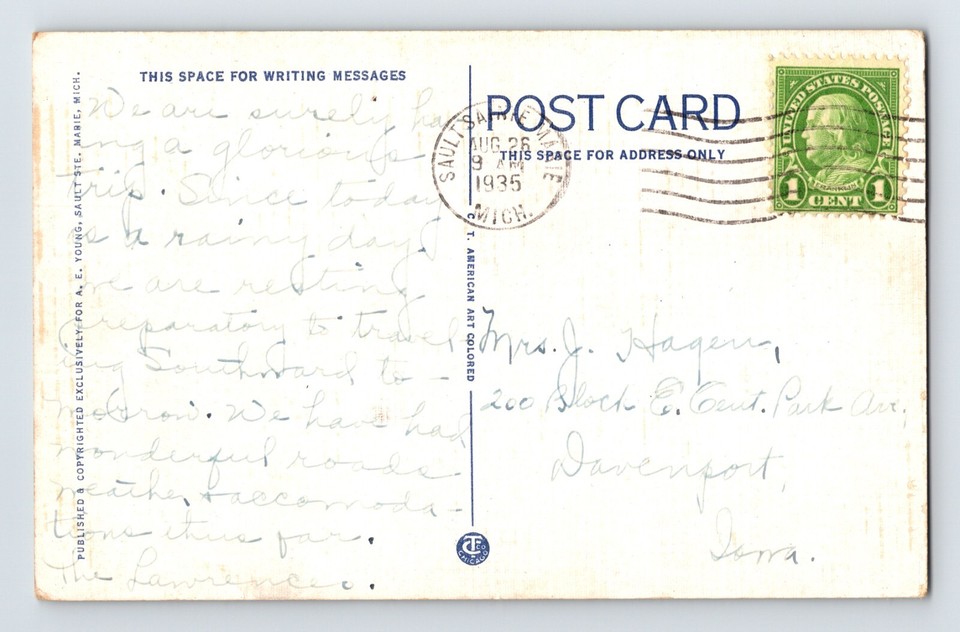 THIS SPACE FOR WRITING MESSAGES
We are surely hav
ing a glorious
trip. Since today
is a rainy day
we are resting
preparatory to travel
ing Southward to -
morrow. We have had
wonderful roads
weather + accomoda -
tions thus far.
The Lawrences.
PUBLISHED & COPYRIGHTED EXCLUSIVELY FOR A. E. YOUNG, SAULT STE. MARIE, MICH.
C. T. AMERICAN ART COLORED
POST CARD
THIS SPACE FOR ADDRESS ONLY
SAULT SAINTE MARIE
AUG 26
9 AM
1935
MICH.
UNITED STATES POSTAGE
FRANKLIN
1 CENT 1
Mrs. J. Hagen,
200 Block E. Cent. Park Ave.
Davenport,
Iowa.
CT CO
CHICAGO